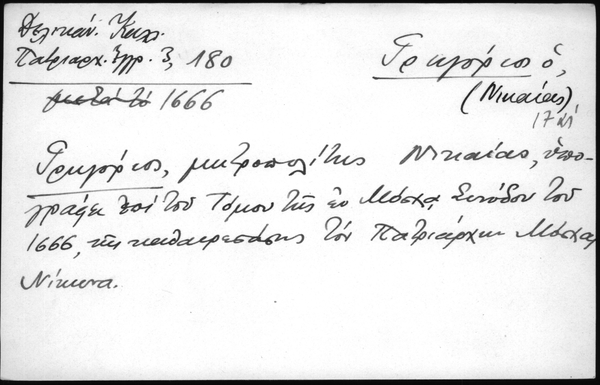 Δελικάν. Καλ.
Πατριαρχ. Έγγρ. 3, 180
μετά το 1666
Γρηγόριος ό,
(Νικαίας)
17 αἰ
Γρηγόριος, μητροπολίτης Νικαίας, ὑπο-
γράφει ἐπί τοῦ Τόμου τῆς ἐν Μόσχᾳ Συνόδου τοῦ
1666, τῆς καθαιρεσάσης τόν Πατριάρχην Μόσχας
Νίκωνα.